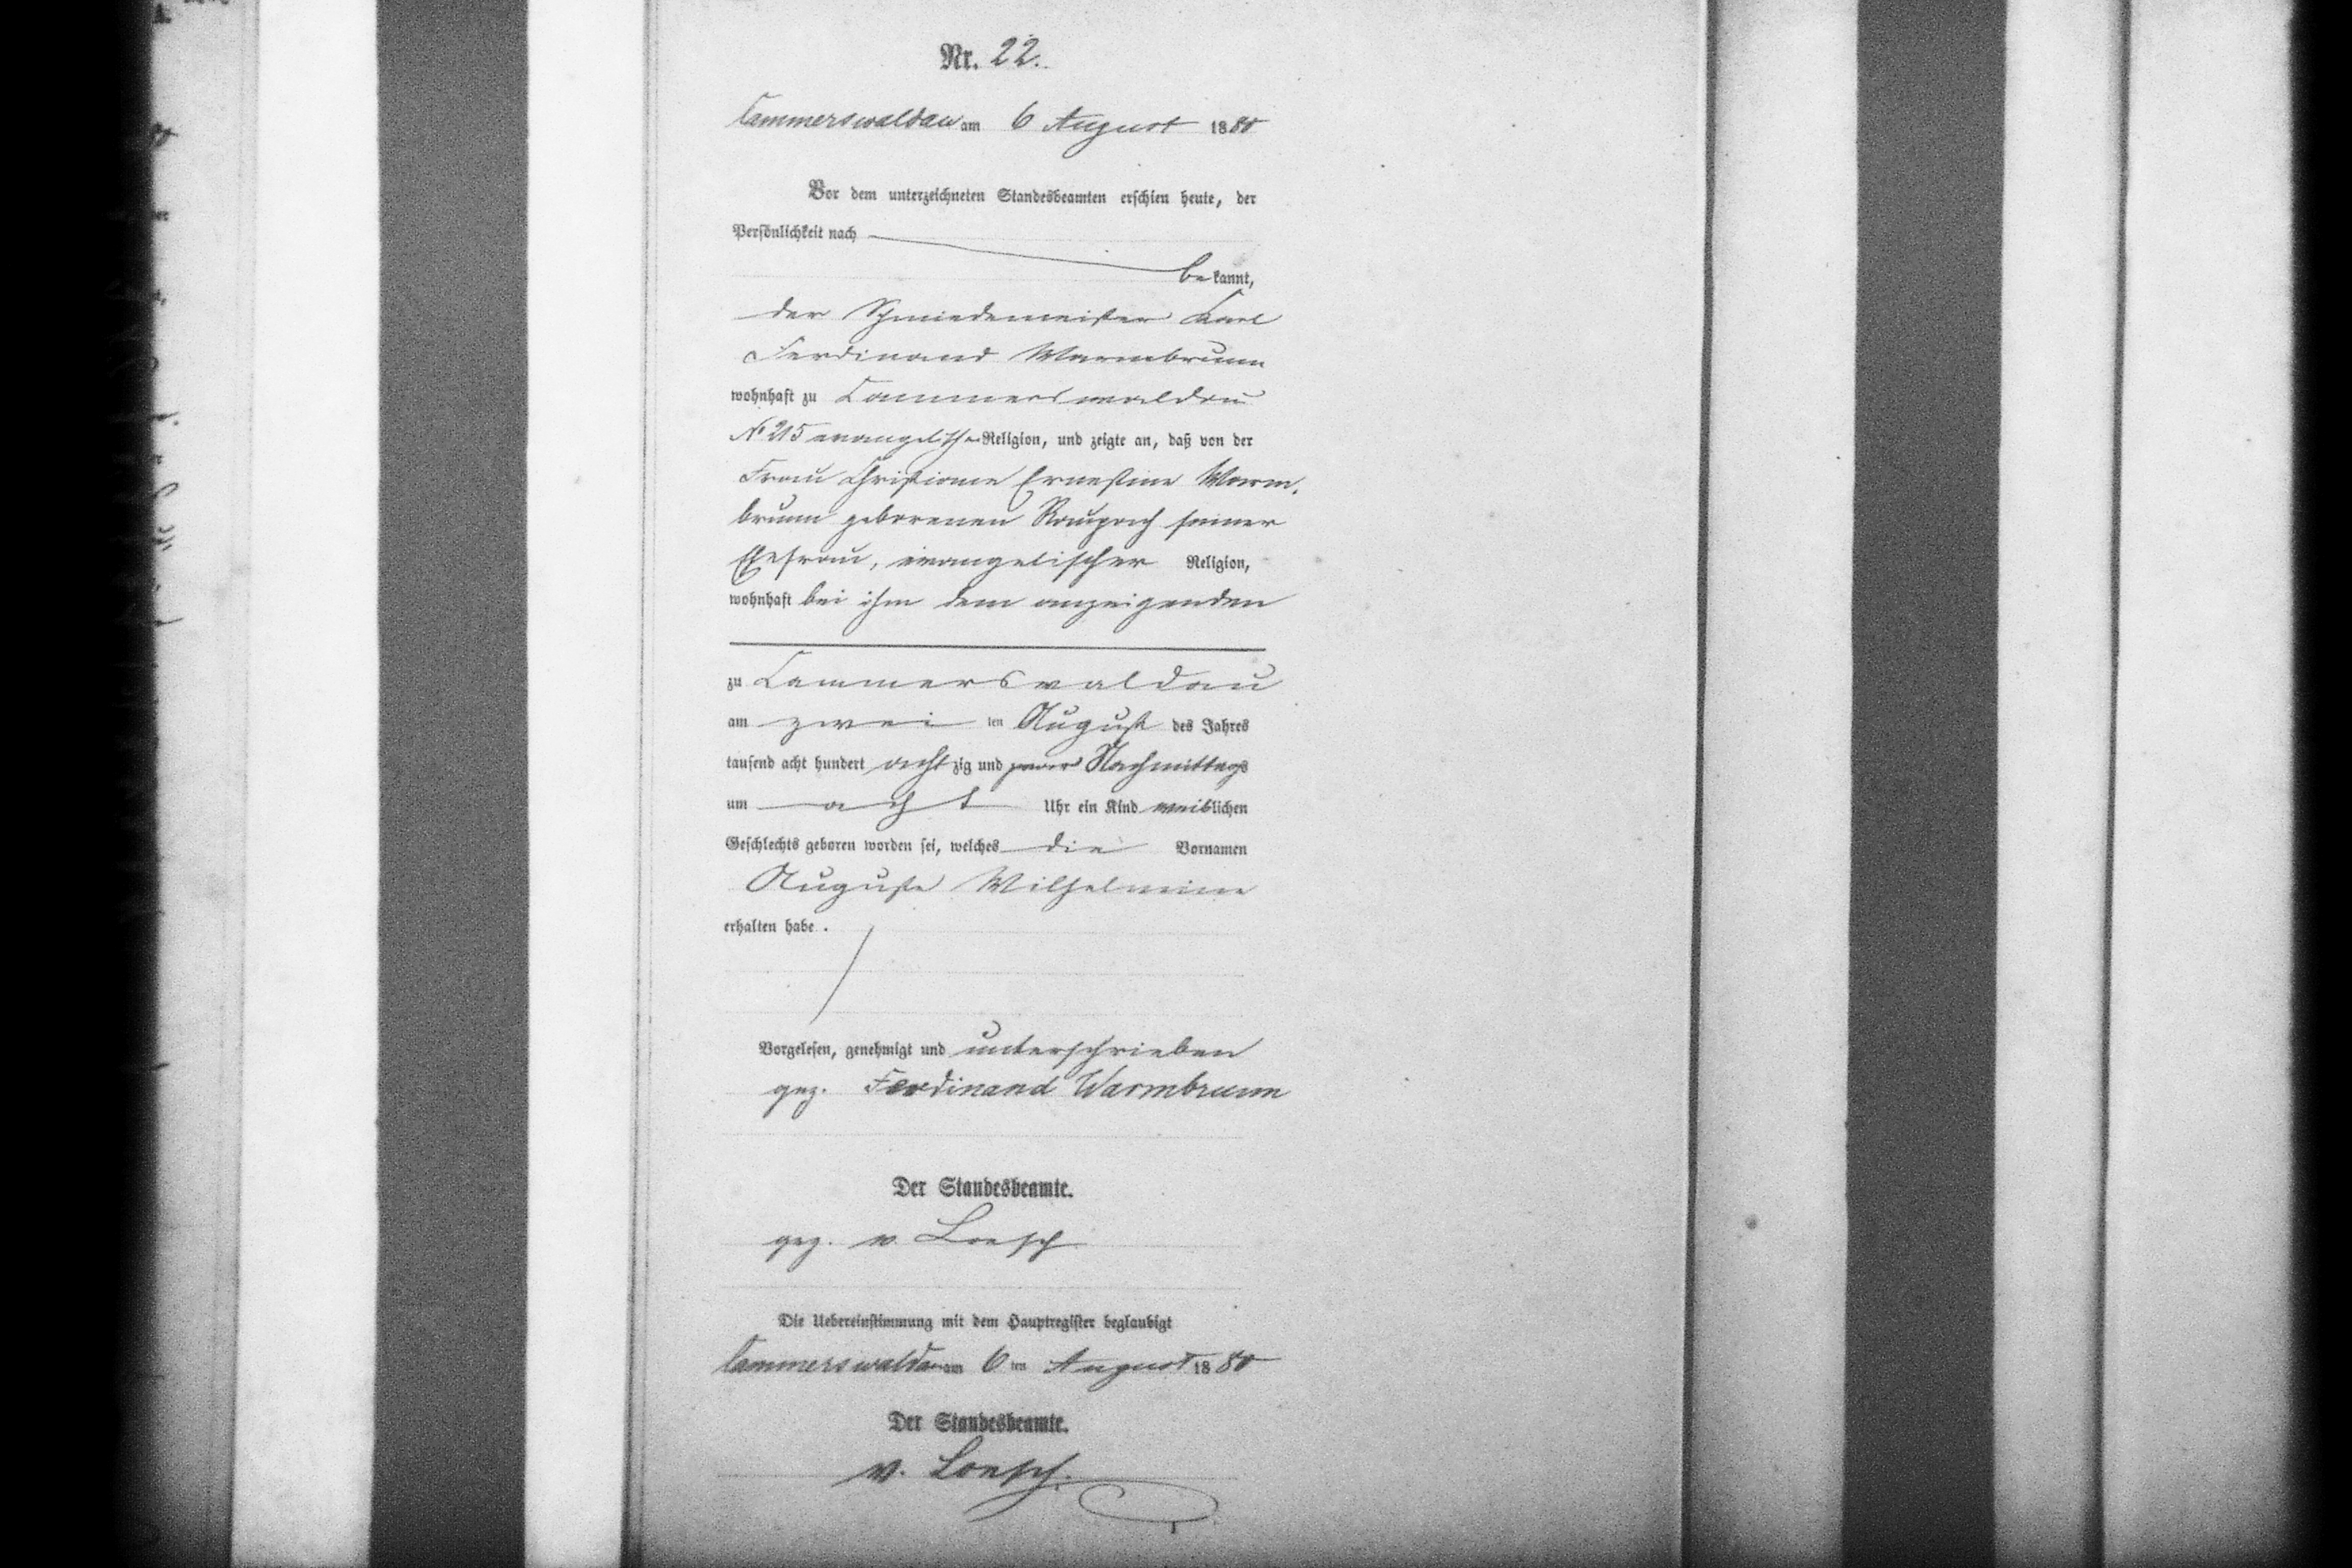 Nr. 22.
Cammerswaldau am 6 August 1880
Vor dem unterzeichneten Standesbeamten erschien heute, der
Persönlichkeit nach
bekannt,
der Schmiedemeister Karl
Ferdinand Warmbrunn
wohnhaft zu Cammerswaldau
No 215 evangelischer Religion, und zeigte an, daß von der
Frau Christiane Ernestine Warm-
brunn geborenen Raupach seiner
Ehefrau, evangelischer Religion,
wohnhaft bei ihm dem anzeigenden
zu Cammerswaldau
am zwei ten August des Jahres
tausend acht hundert achtzig und Nachmittags
um acht Uhr ein Kind weiblichen
Geschlechts geboren worden sei, welches die Vornamen
Auguste Wilhelmine
erhalten habe.
Vorgelesen, genehmigt und unterschrieben
gez. Ferdinand Warmbrunn
Der Standesbeamte.
gez. v. Loesch
Die Uebereinstimmung mit dem Hauptregister beglaubigt
Cammerswaldau am 6 ten August 1880
Der Standesbeamte.
v. Loesch.